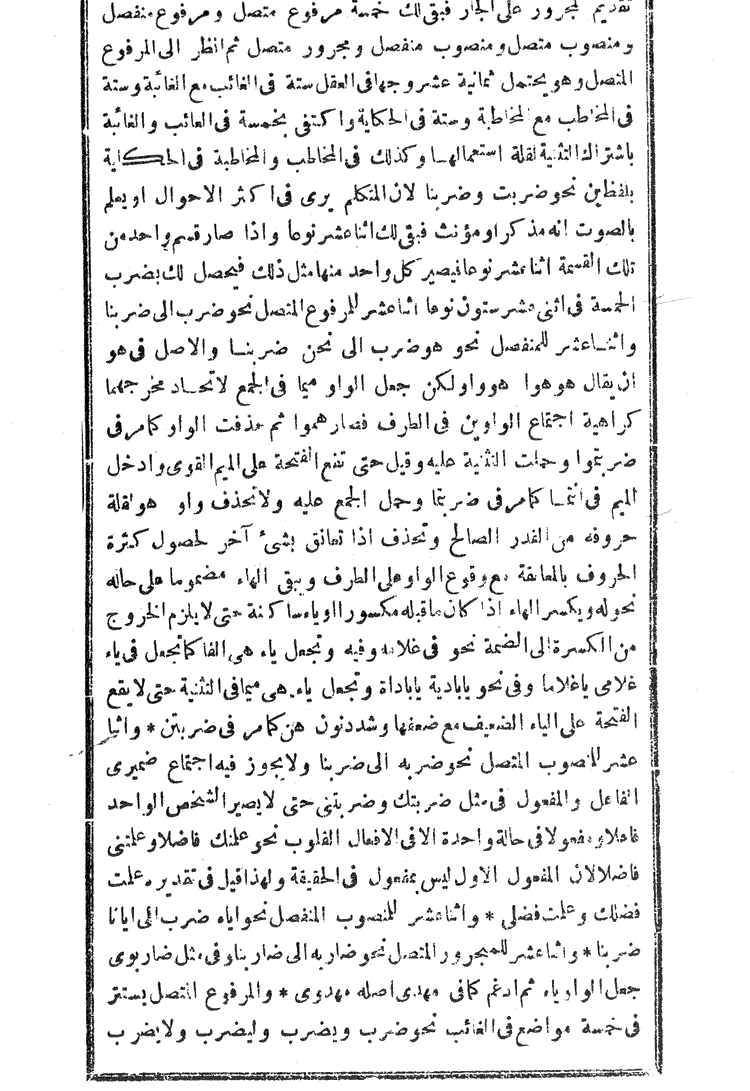 تقديم المجرور على الجار فبقى لك خمسة مرفوع متصل ومرفوع منفصل
ومنصوب متصل ومنصوب منفصل ومجرور متصل ثم انظر الى المرفوع
المتصل وهو يحتمل ثمانية عشر وجها فى العقل ستة فى الغائب مع الغائبة وستة
فى المخاطب مع المخاطبة وستة فى الحكاية واكتفى بخمسة فى الغائب والغائبة
باشتراك التثنية لقلة استعمالها وكذلك فى المخاطب والمخاطبة فى الحكاية
بلفظين نحو ضربت وضربنا لان المتكلم يرى فى اكثر الاحوال او يعلم
بالصوت انه مذكر او مؤنث فبقى لك اثنا عشر نوعا واذا صار قسم واحد من
تلك القسمة اثنا عشر نوعا فيصير كل واحد منها مثل ذلك فيحصل لك بضرب
الخمسة فى اثنى عشر ستون نوعا اثنا عشر للمرفوع المتصل نحو ضرب الى ضربنا
واثنا عشر للمنفصل نحو هو ضرب الى نحن ضربنا والاصل فى هو
ان يقال هو هوا هووا ولكن جعل الواو ميما فى الجمع لاتحاد مخرجهما
كراهية اجتماع الواوين فى الطرف فصار هموا ثم حذفت الواو كما مر فى
ضربتموا وحملت التثنية عليه وقيل حتى تقع الفتحة على الميم القوى وادخل
الميم فى انتما كما مر فى ضربتما وحمل الجمع عليه ولا تحذف واو هو لقلة
حروفه من القدر الصالح وتحذف اذا تعانق بشئ آخر لحصول كثرة
الحروف بالمعانقة مع وقوع الواو على الطرف ويبقى الهاء مضموما على حاله
نحو له ويكسر الهاء اذا كان ما قبله مكسورا او ياء ساكنة حتى لا يلزم الخروج
من الكسرة الى الضمة نحو فى غلامه وفيه وتجعل ياء هى الفا كما تجعل فى ياء
غلامى يا غلاما وفى نحو يا بادية يا باداة وتجعل ياء هى ميما فى التثنية حتى لا يقع
الفتحة على الياء الضعيف مع ضعفها وشدد نون هن كما مر فى ضربتن * واثنا
عشر للمنصوب المتصل نحو ضربه الى ضربنا ولا يجوز فيه اجتماع ضميرى
الفاعل والمفعول فى مثل ضربتك وضربتنى حتى لا يصير الشخص الواحد
فاعلا ومفعولا فى حالة واحدة الا فى الافعال القلوب نحو علمتك فاضلا وعلمتنى
فاضلا لان المفعول الاول ليس بمفعول فى الحقيقة ولهذا قيل فى تقديره علمت
فضلك وعلمت فضلى * واثنا عشر للمنصوب المنفصل نحو اياه ضرب الى ايانا
ضربنا * واثنا عشر للمجرور المتصل نحو ضاربه الى ضاربنا وفى مثل ضاربوى
جعل الواو ياء ثم ادغم كما فى مهدى اصله مهدوى * والمرفوع المتصل يستتر
فى خمسة مواضع فى الغائب نحو ضرب ويضرب وليضرب ولا يضرب